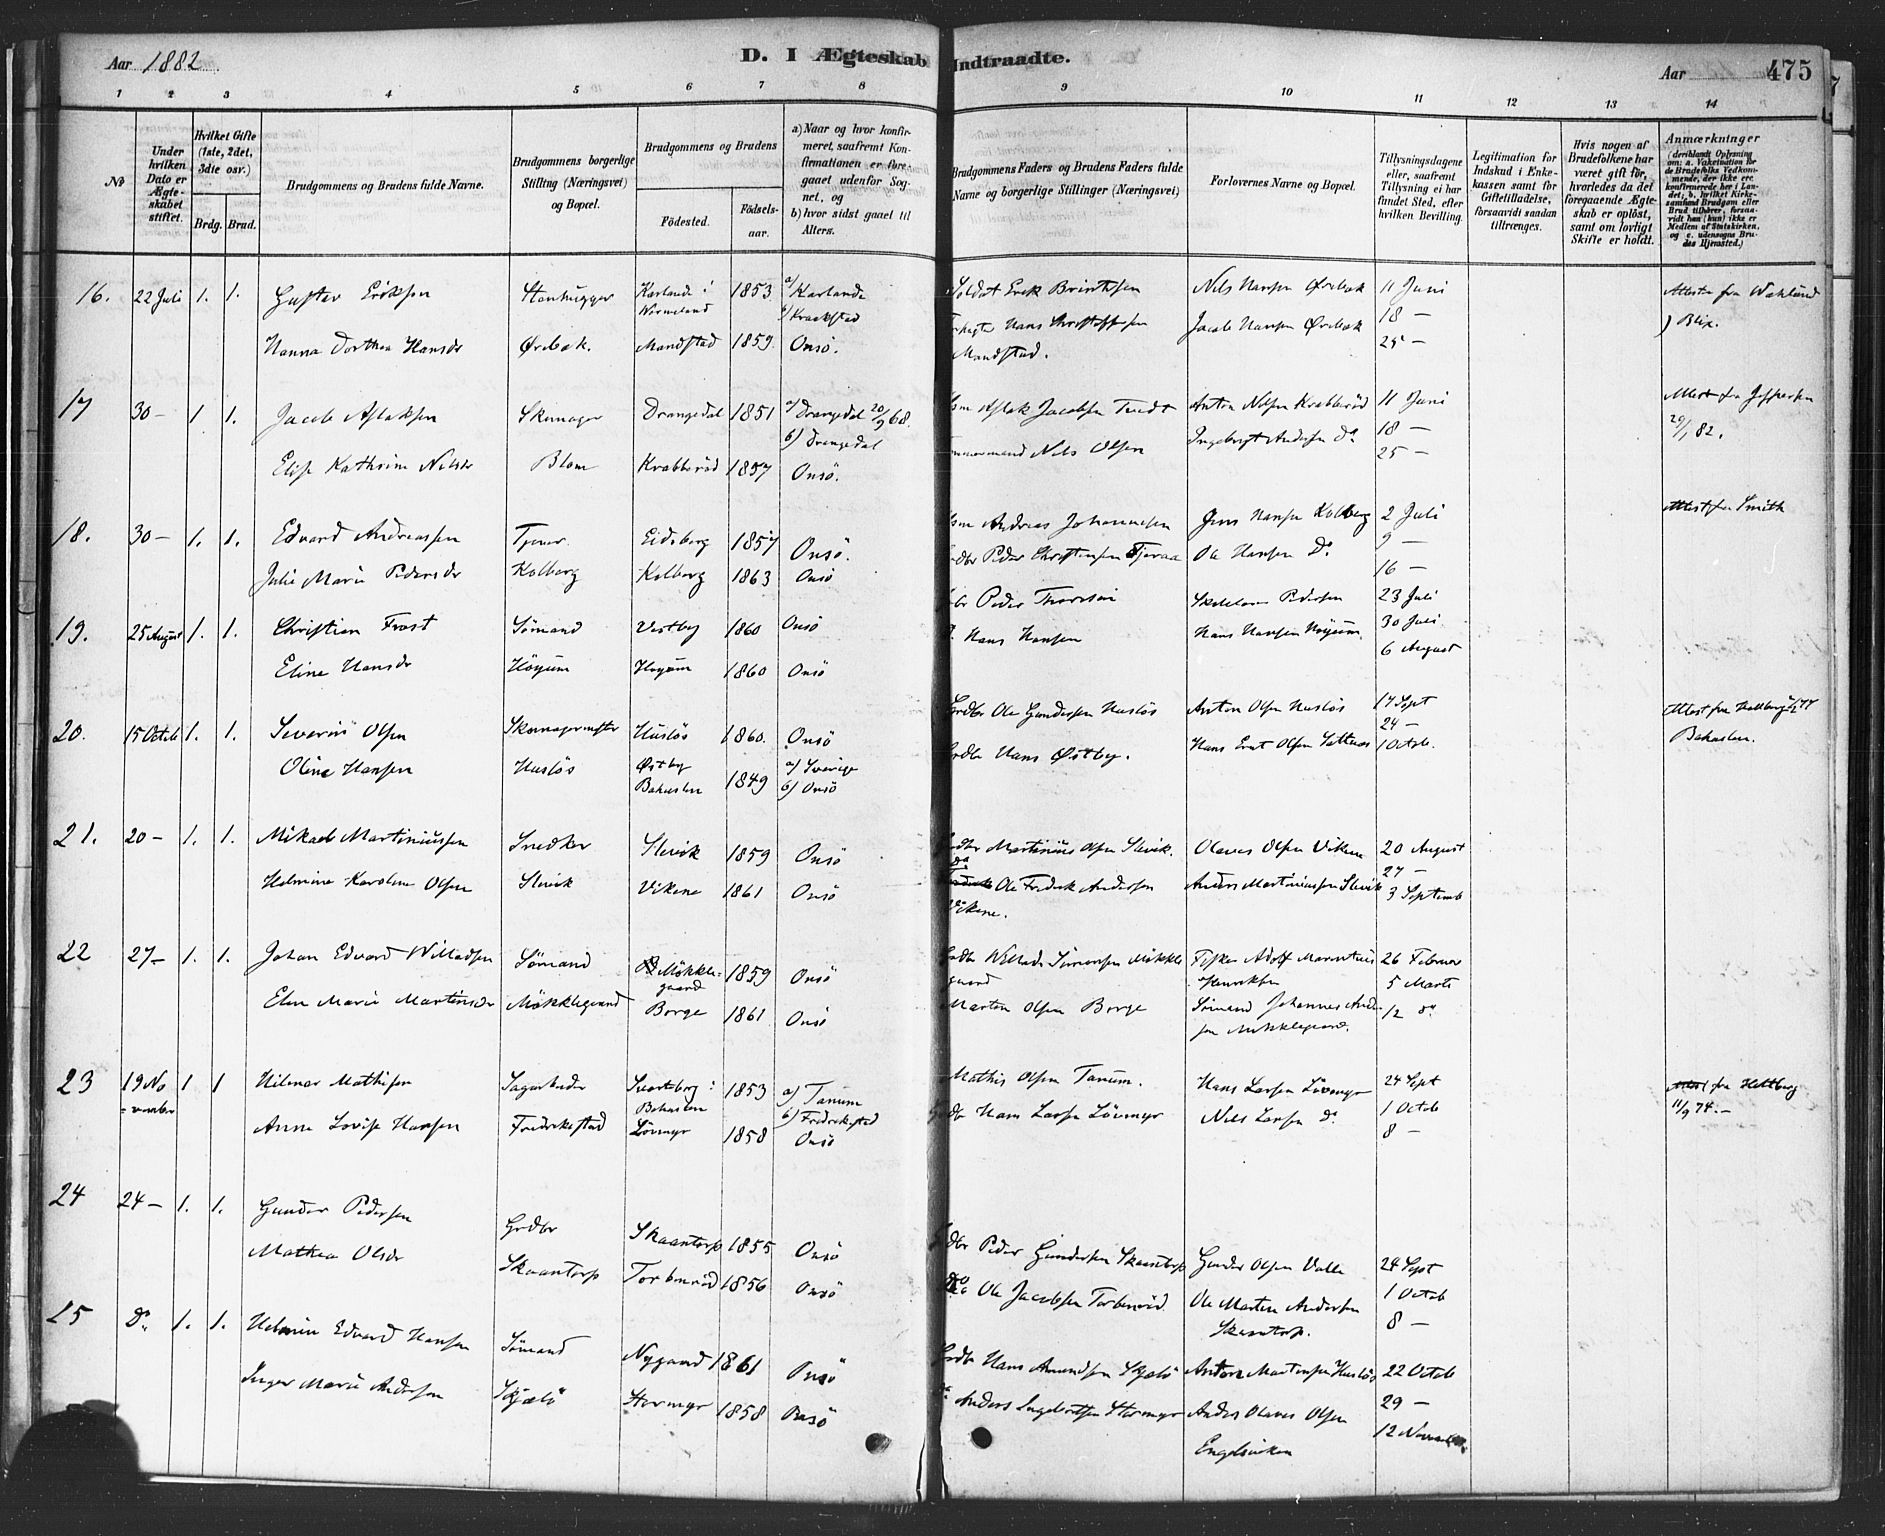 Aar 1882
D. I Ægteskab Indtraadte.
Aar 475
1 2 3 4 5 6 7 8 9 10 11 12 13 14
No
Under hvilken Dato er Ægteskabet stiftet.
Hvilket Gifte (1ste, 2det, 3die osv.)
Brdg. Brud.
Brudgommens og Brudens fulde Navne.
Brudgommens borgerlige Stilling (Næringsvei) og Bopæl.
Brudgommens og Brudens
Fødested.
Fødselsaar.
a) Naar og hvor konfirmeret, saafremt Konfirmationen er foregaaet udenfor Sognet, og
b) hvor sidst gaaet til Alters.
Brudgommens Faders og Brudens Faders fulde Navne og borgerlige Stillinger (Næringsvei)
Forlovernes Navne og Bopæl.
Tillysningsdagene eller, saafremt Tillysning ei har fundet Sted, efter hvilken Bevilling.
Legitimation for Indskud i Enkekassen samt for Giftetilladelse, forsaavidt saadan tiltrænges.
Hvis nogen af Brudefolkene har været gift før, hvorledes da det foregaaende Ægteskab er opløst, samt om lovligt Skifte er holdt.
Anmærkninger
(deriblandt Oplysning om: a. Vakcination for de Brudefolks Vedkommende, der ikke ere konfirmerede her i Landet; b. hvilket Kirkesamfund Brudgom eller Brud tilhører, forsaavidt han (hun) ikke er Medlem af Statskirken, og c. udensogns Brudes Hjemsted.)
16. 22 Juli 1. 1. Gustav Eriksen Stenhugger Karlanda i Wermeland 1853 a) Karlanda b) Kraakstad Soldat Erik Nils Hansen Ørebæk 11 Juni Attester fra
Hanna Dorthea Hansdr Ørebæk. Mandstad 1859. Onsö. Hans Christoffersen Mandstad. Jacob Hansen Ørebæk 18 — 25 — Blix.
17 30 — 1 1. Jacob Aslaksen Skomager Drangedal 1851 a) Drangedal 20/9 68. b) Drangedal Aslak Jacobsen Anton Nilsen Krabberød 11 Juni Attest fra Jespersen
Elise Kathrine Nilsdr Krabberød 1857 Onsö. Nils Olsen Andersen Do 18 — 25 — 29/1 82.
18. 30 — 1. 1. Edvard Andreassen Eidsberg 1857 Onsö. Andreas Johannesen Jens Hansen Kolberg 2 Juli Attest fra Smith
Julie Marie Pedersdr Kolberg Kolberg 1863 Onsö Peder Christensen Ole Hansen Do 9 — 16 —
19. 25 August 1. 1. Christian Frost Sömand Vestby 1860 Onsö Peder Pedersen 23 Juli
Eline Hansdr Höyum Höyum 1860 Onsö Hans Hansen Hans Hansen Höyum 30 Juli 6 August
20. 15 Octob 1. 1. Severin Olsen Skomagermester Huslös 1860. Onsö Grdbr Ole Gundersen Huslös Anton Olsen Huslös 17 Sept Attest fra Hallberg
Oline Hansen Huslös Østby Bahuslen 1849 a) Sverige b) Onsö Grdbr Hans Østby. Hans Olsen 24 — 1 Octob. Bahuslen.
21. 20 — 1. 1. Mikael Martiniussen Snedker Slevik 1859 Onsö Grdbr Martinius Olsen Slevik. Olaves Olsen Vikene 20 August
Helmine Karoline Olsen Slevik Vikene 1861 Onsö Do Ole Fredrik Andersen Vikene. Anders Martiniussen Slevik 27 — 3 Septemb
22 27 — 1. 1. Johan Edvard Willadsen Sömand Mökklegaard 1859 Onsö Grdbr Willads Simensen Mökklegaard Fisker Adolf Marentius Henriksen 26 Februar
Elen Marie Martinsdr Mökklegaard Borge 1861 Onsö Marten Olsen Borge Sömand Johannes Andersen Mökklegaard. 5 Marts 12 do
23 19 November 1 1 Hilmar Mathisen Sagarbeider Svarteborg i Bahuslen 1853 a) Tanum b) Fredrikstad Mathis Olsen Tanum. Hans Larsen Lövmyr 24 Sept Attest fra Hallberg
Anne Lovise Hansen Fredrikstad Lövmyr 1858 Onsö Grdbr Hans Larsen Lövmyr Nils Larsen Do 1 Octob 8 — 11/9 74. —
24 24 — 1. 1. Gunder Pedersen Grdbr Skaantorp 1855 Onsö Grdbr Peder Gundersen Skaantorp Gunder Olsen Valle 24 Sept
Mathea Olsdr Skaantorp Torbenröd 1856 Onsö Do Ole Jacobsen Torbenröd. Ole Marten Andersen Skaantorp. 1 Octob 8 —
25 Do. 1. 1. Edvard Hansen Sömand Nygaard 1861 Onsö Grdbr Hans Amundsen Skjælö Anton Martinsen Huslös 22 Octob
Inger Marie Andersen Skjælö Stormyr 1858 Onsö Do Anders Ingebretsen Stormyr Anders Olaves Olsen Engelsviken 29 — 12 Novemb